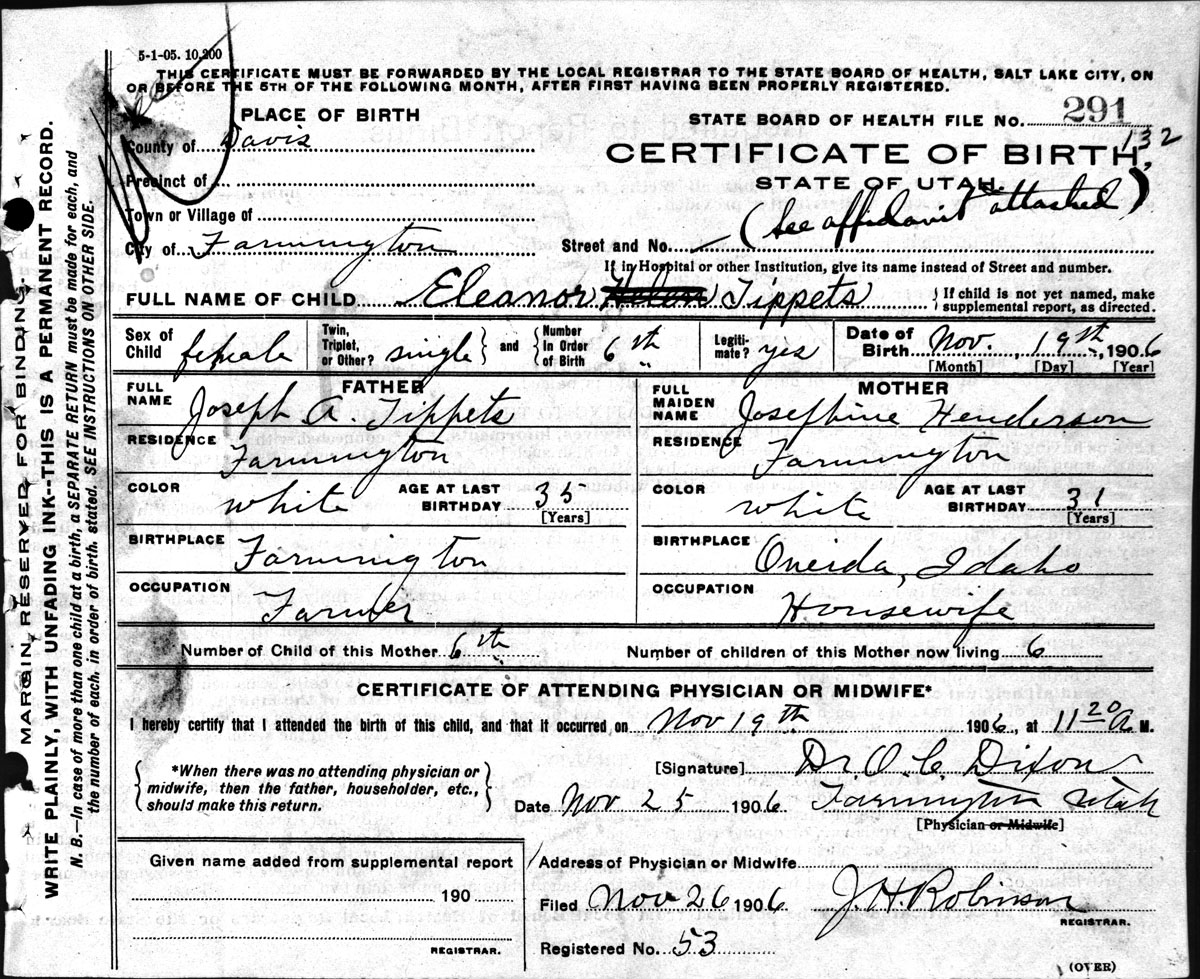 5-1-05. 10,200
THIS CERTIFICATE MUST BE FORWARDED BY THE LOCAL REGISTRAR TO THE STATE BOARD OF HEALTH, SALT LAKE CITY, ON
OR BEFORE THE 5TH OF THE FOLLOWING MONTH, AFTER FIRST HAVING BEEN PROPERLY REGISTERED.
PLACE OF BIRTH
STATE BOARD OF HEALTH FILE No. 291
132
County of Davis
CERTIFICATE OF BIRTH,
Precinct of
STATE OF UTAH.
Town or Village of
(See affidavit attached)
City of Farmington
Street and No.
If in Hospital or other Institution, give its name instead of Street and number.
FULL NAME OF CHILD Eleanor Helen Tippets
{If child is not yet named, make
supplemental report, as directed.
Sex of Child female
Twin, Triplet, or Other? single } and { Number In Order of Birth 6th
Legitimate? yes
Date of Birth Nov. , 19th , 1906
[Month] [Day] [Year]
FATHER
FULL NAME Joseph A. Tippets
RESIDENCE Farmington
COLOR white
AGE AT LAST BIRTHDAY 35
[Years]
BIRTHPLACE Farmington
OCCUPATION Farmer
MOTHER
FULL MAIDEN NAME Josephine Henderson
RESIDENCE Farmington
COLOR white
AGE AT LAST BIRTHDAY 31
[Years]
BIRTHPLACE Oneida, Idaho
OCCUPATION Housewife
Number of Child of this Mother 6th
Number of children of this Mother now living 6
CERTIFICATE OF ATTENDING PHYSICIAN OR MIDWIFE*
I hereby certify that I attended the birth of this child, and that it occurred on Nov 19th 1906, at 11 20 A M.
{*When there was no attending physician or
midwife, then the father, householder, etc.,
should make this return.}
[Signature] Dr O. C. Dixon
Date Nov 25 1906. Farmington Utah
[Physician or Midwife]
Given name added from supplemental report
190
REGISTRAR.
Address of Physician or Midwife
Filed Nov 26 1906. J. H. Robinson
REGISTRAR.
Registered No. 53
(OVER)
MARGIN RESERVED FOR BINDING.
WRITE PLAINLY, WITH UNFADING INK--THIS IS A PERMANENT RECORD.
N. B.—In case of more than one child at a birth, a SEPARATE RETURN must be made for each, and
the number of each, in order of birth, stated. SEE INSTRUCTIONS ON OTHER SIDE.